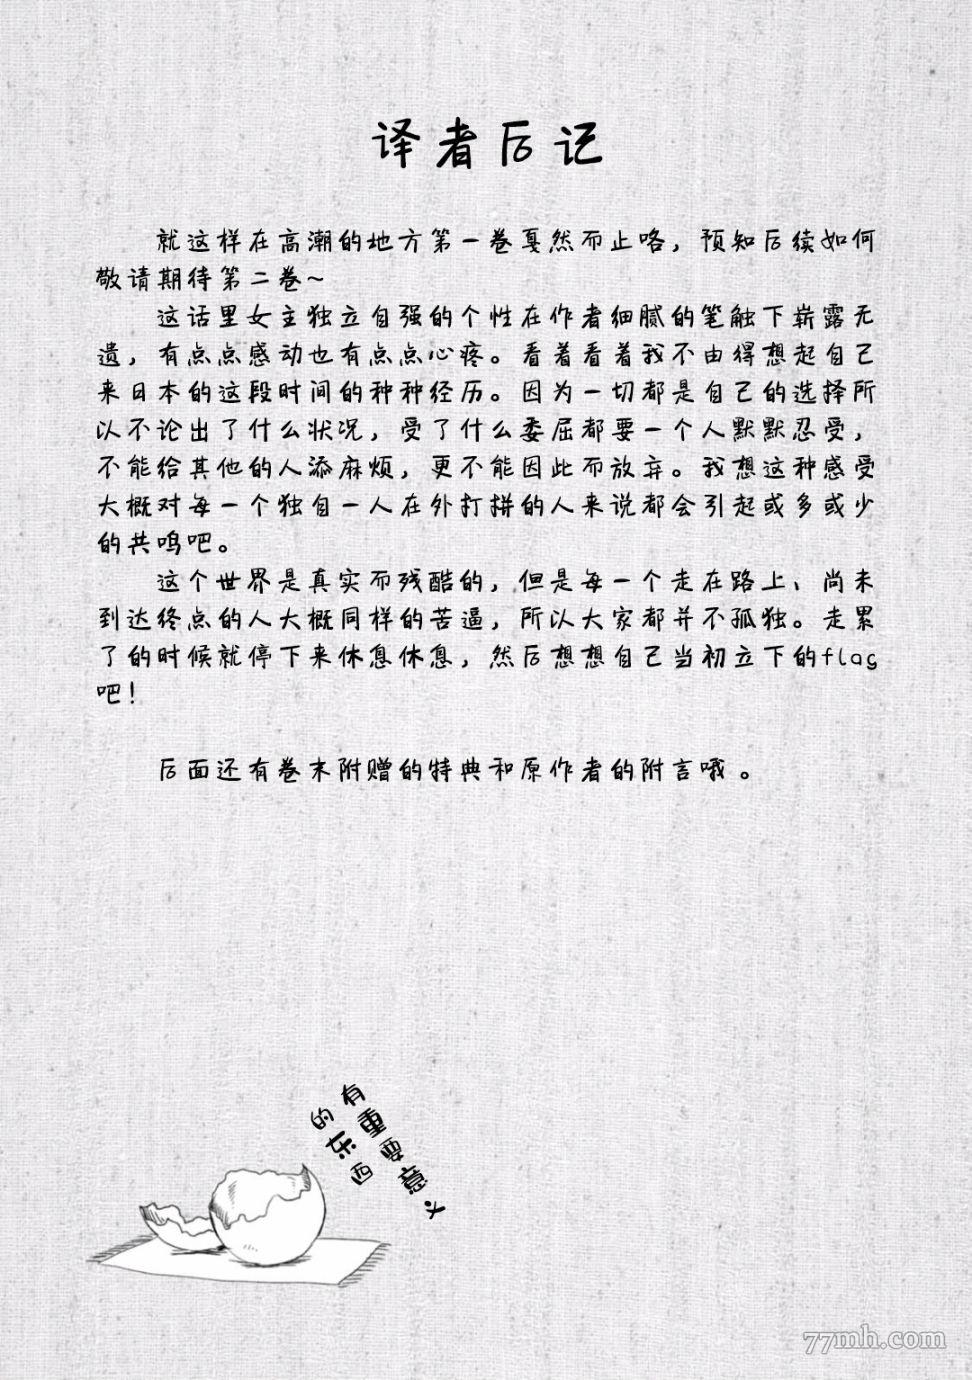 译者后记
就这样在高潮的地方第一卷戛然而止咯，预知后续如何
敬请期待第二卷~
这话里女主独立自强的个性在作者细腻的笔触下崭露无
遗，有点点感动也有点点心疼。看着看着我不由得想起自己
来日本的这段时间的种种经历。因为一切都是自己的选择所
以不论出了什么状况，受了什么委屈都要一个人默默忍受，
不能给其他的人添麻烦，更不能因此而放弃。我想这种感受
大概对每一个独自一人在外打拼的人来说都会引起或多或少
的共鸣吧。
这个世界是真实而残酷的，但是每一个走在路上、尚未
到达终点的人大概同样的苦逼，所以大家都并不孤独。走累
了的时候就停下来休息休息，然后想想自己当初立下的flag
吧！
后面还有卷末附赠的特典和原作者的附言哦。
有重要意义
的东西
77mh.com